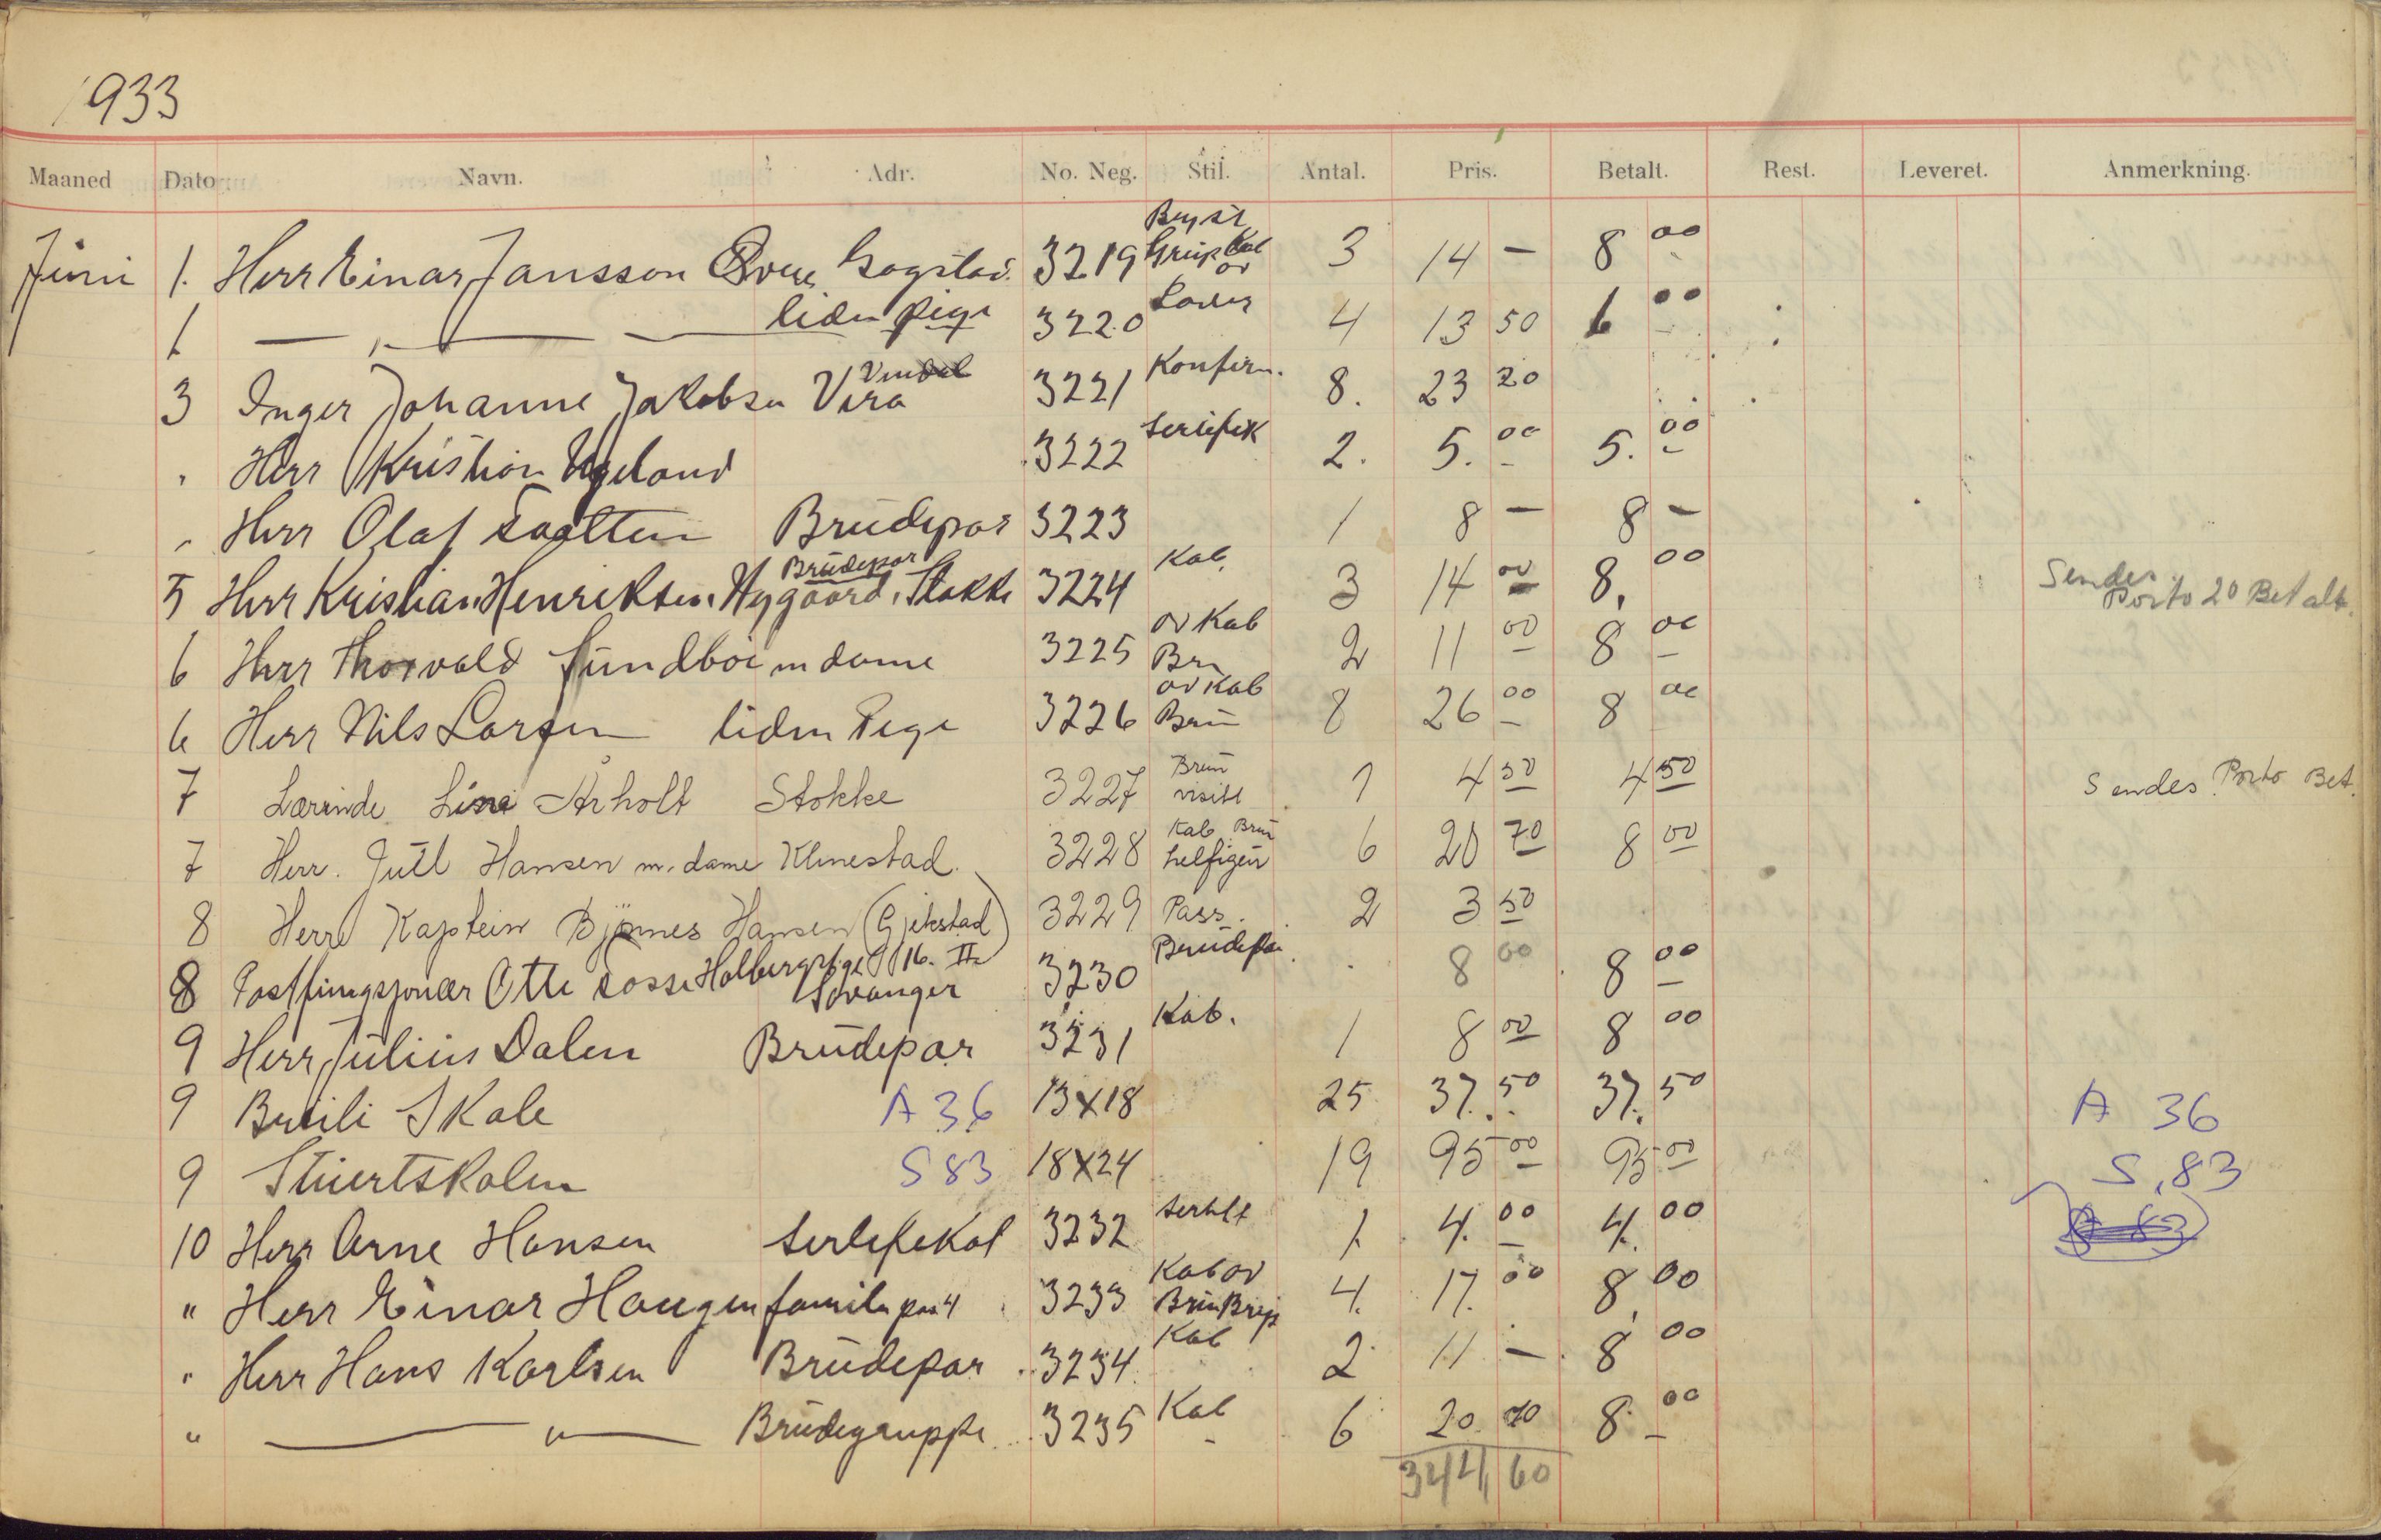 1933
Maaned Dato Navn. Adr. No. Neg. Stil. Antal. Pris. Betalt. Rest. Leveret. Anmerkning.
Juni 1. Herr Einar Jansson 3219 Bryst Kab 3 14 — 8 00
1 — „ — liden pige 3220 4 13 50 6 00
3 Inger Johanne Jakobsen Vera 3221 Konfirm. 8. 23 20
„ Herr Kristian Ugeland 3222 2. 5. 00 5. 00
„ Herr Olaf Brudepar 3223 1 8 — 8 —
5 Herr Kristian Henriksen. Nygaard. Stokke Brudepar 3224 Kab. 3 14 00 8. 00 Sendes. Porto 20 Betalt.
6 Herr Thorvald Sundboe m dame 3225 ov Kab Brn 2 11 00 8 00
6 Herr Nils Larsen liden Pige 3226 ov Kab Brun 8 26 00 8 00
7 Lærerinde Arholt Stokke 3227 Brun visitt 1 4 50 4 50 Sendes. Porto Bet.
7 Herr. Hansen m. dame Klinestad. 3228 Kab Brun helfigur 6 20 70 8 00
8 Herr Kaptein Hansen (Gjekstad) 3229 Pass. 2 3 50
8 Otto 16. II. 3230 Brudepar. 8 00 8 00
9 Herr Julius Dalen Brudepar 3231 Kab. 1 8 00 8 00
9 Skole A 36 13x18 25 37. 50 37. 50 A 36
9 Stuertskolen S 83 18x24 19 95 00 95 00 S. 83
10 Herr Arne Hansen 3232 1 4. 00 4. 00
" Herr Einar Haugen 3233 Kab ov Brun 4. 17. 00 8. 00
" Herr Hans Karlsen Brudepar 3234 Kab 2 11 — 8 00
" — „ — Brudegruppe 3235 Kab 6 20. 70 8. 00
344 60